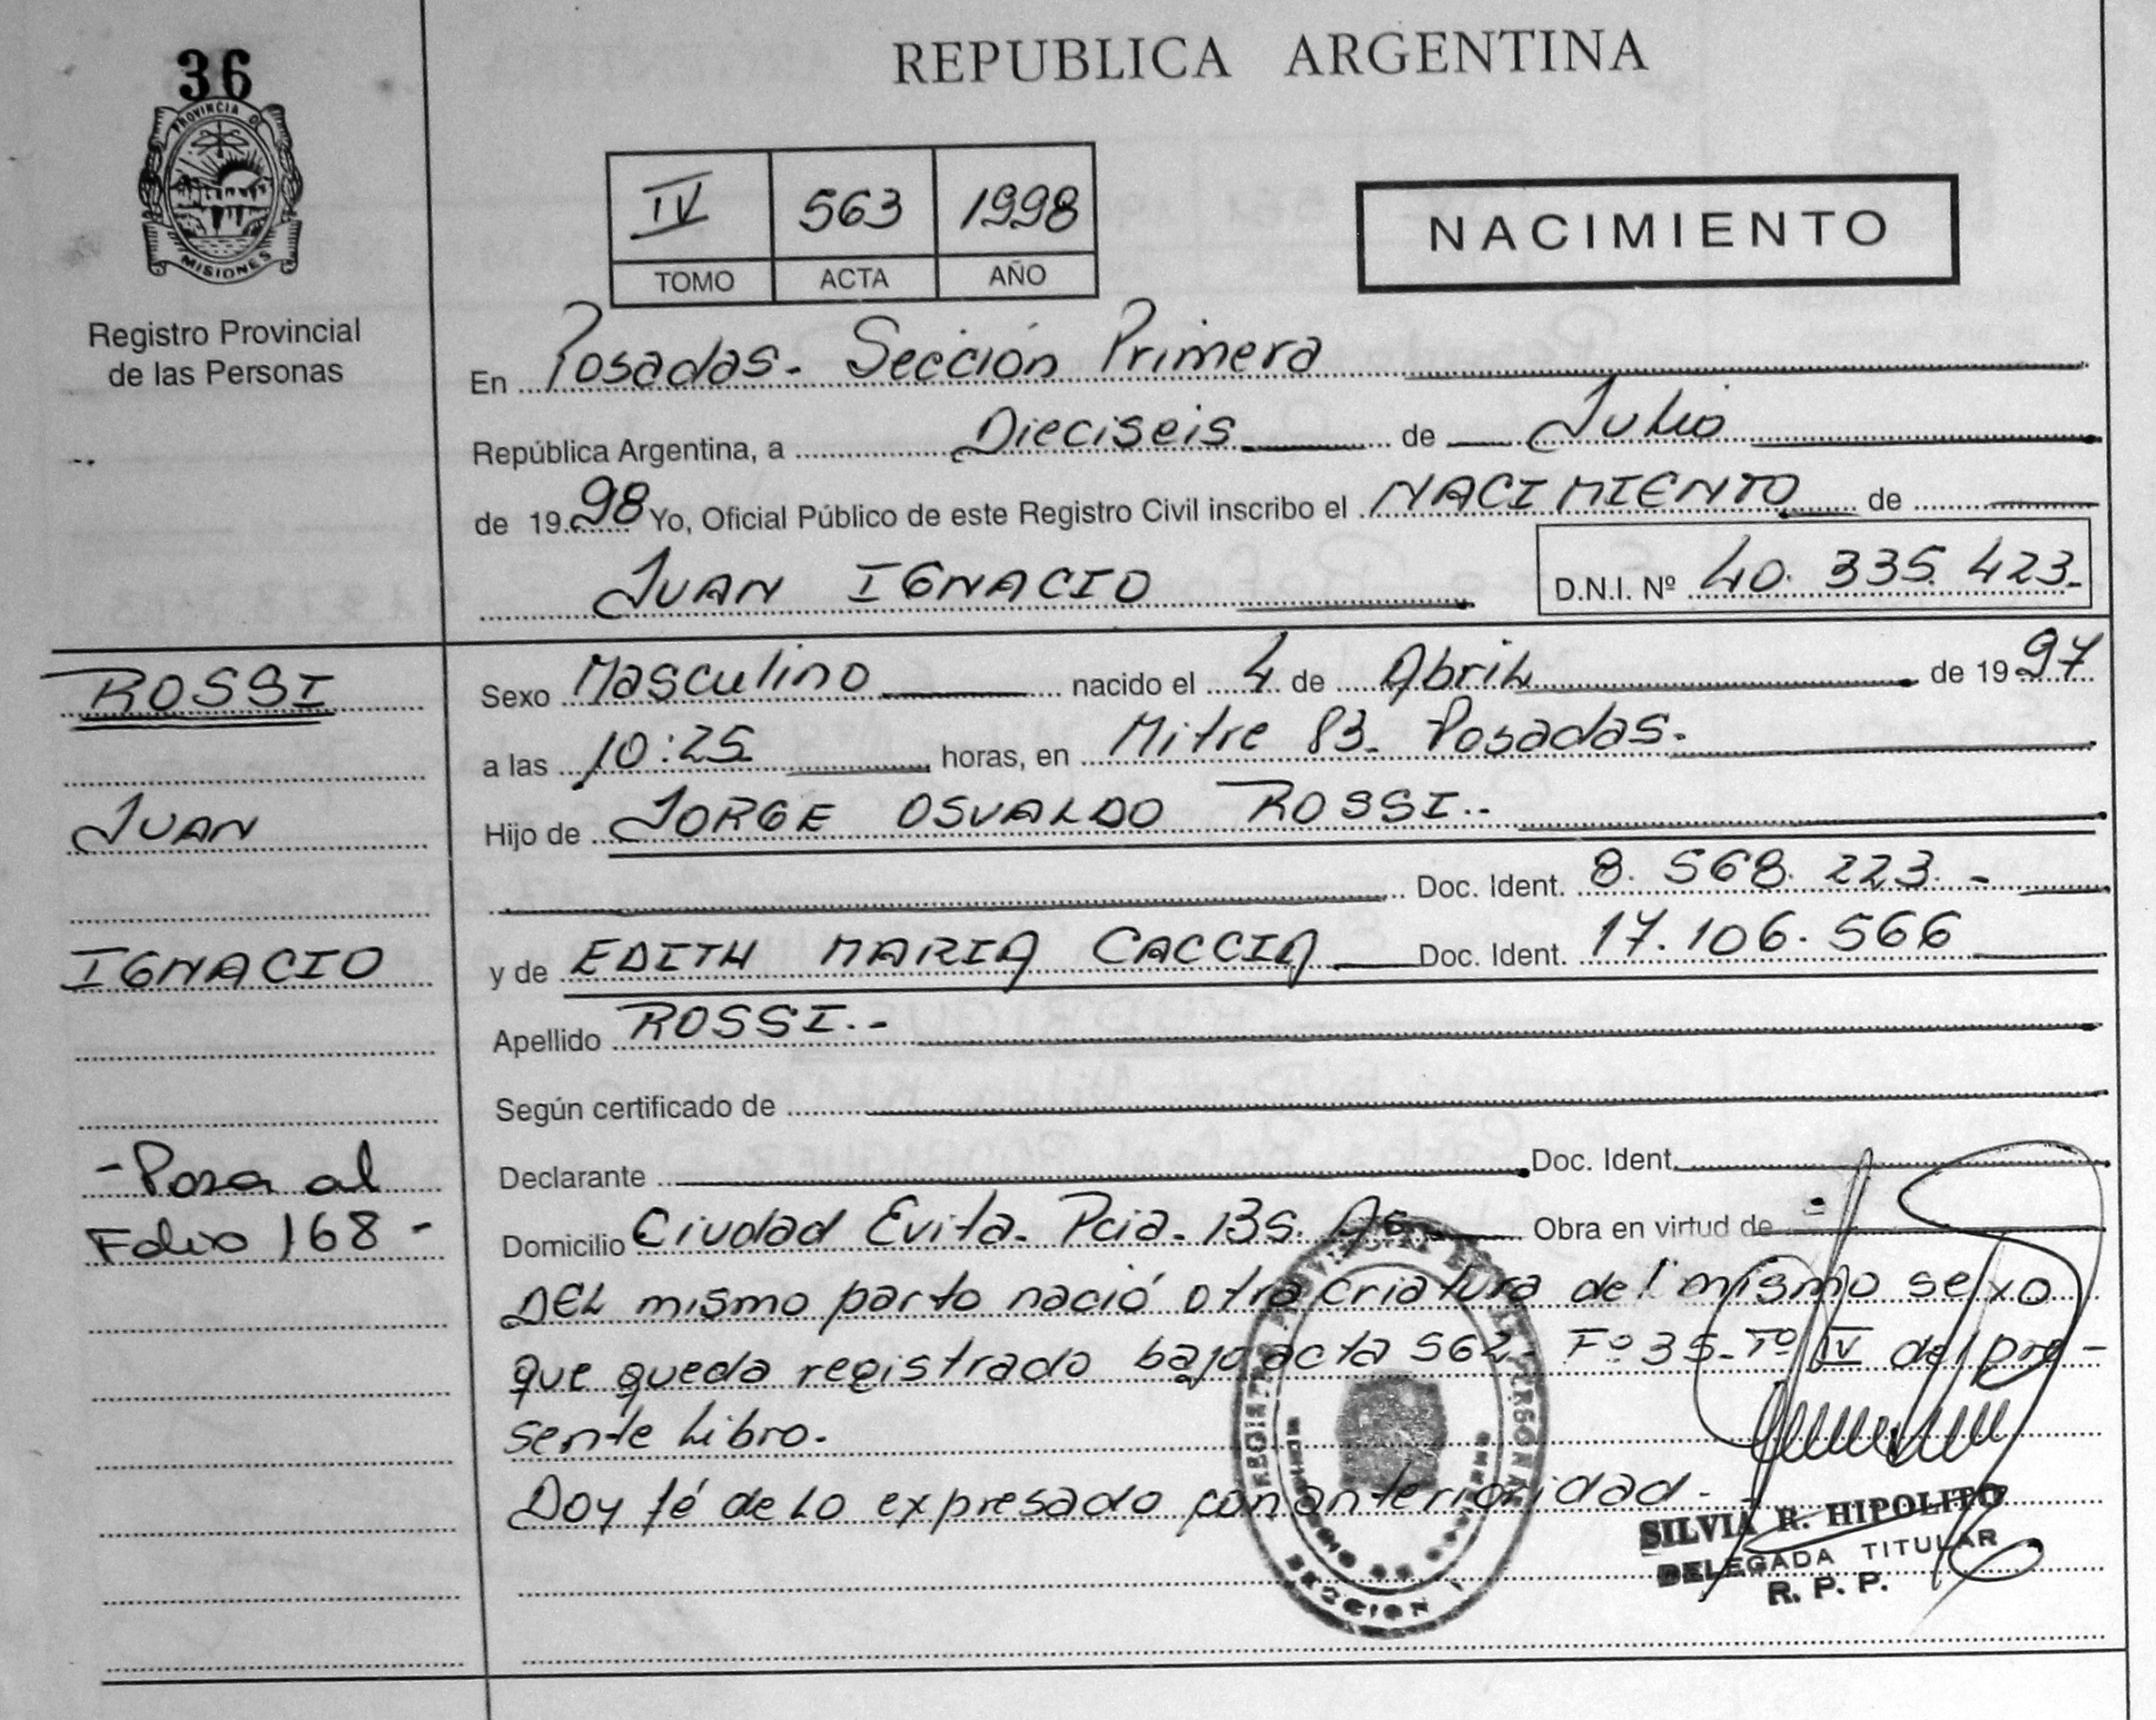 36
PROVINCIA DE
MISIONES
Registro Provincial
de las Personas
REPUBLICA ARGENTINA
IV 563 1998
TOMO ACTA AÑO
NACIMIENTO
En Posadas. Sección Primera
República Argentina, a Dieciseis de Julio
de 1998 Yo, Oficial Público de este Registro Civil inscribo el NACIMIENTO de
JUAN IGNACIO D.N.I. Nº 40.335.423.
ROSSI
JUAN
IGNACIO
- Pasa al
Folio 168 -
Sexo Masculino nacido el 4 de Abril de 1997
a las 10:25 horas, en Mitre 83. Posadas.
Hijo de JORGE OSVALDO ROSSI.-
Doc. Ident. 8.568.223.-
y de EDITH MARIA CACCIA Doc. Ident. 17.106.566
Apellido ROSSI.-
Según certificado de
Declarante Doc. Ident.
Domicilio Ciudad Evita. Pcia. Bs. As. Obra en virtud de :
DEL mismo parto nació otra criatura del mismo sexo
que queda registrado bajo acta 562. Fº 35. Tº IV del pre-
sente Libro.
Doy fé de lo expresado con anterioridad.-
SECCION
SILVIA R. HIPOLITO
DELEGADA TITULAR
R. P. P.